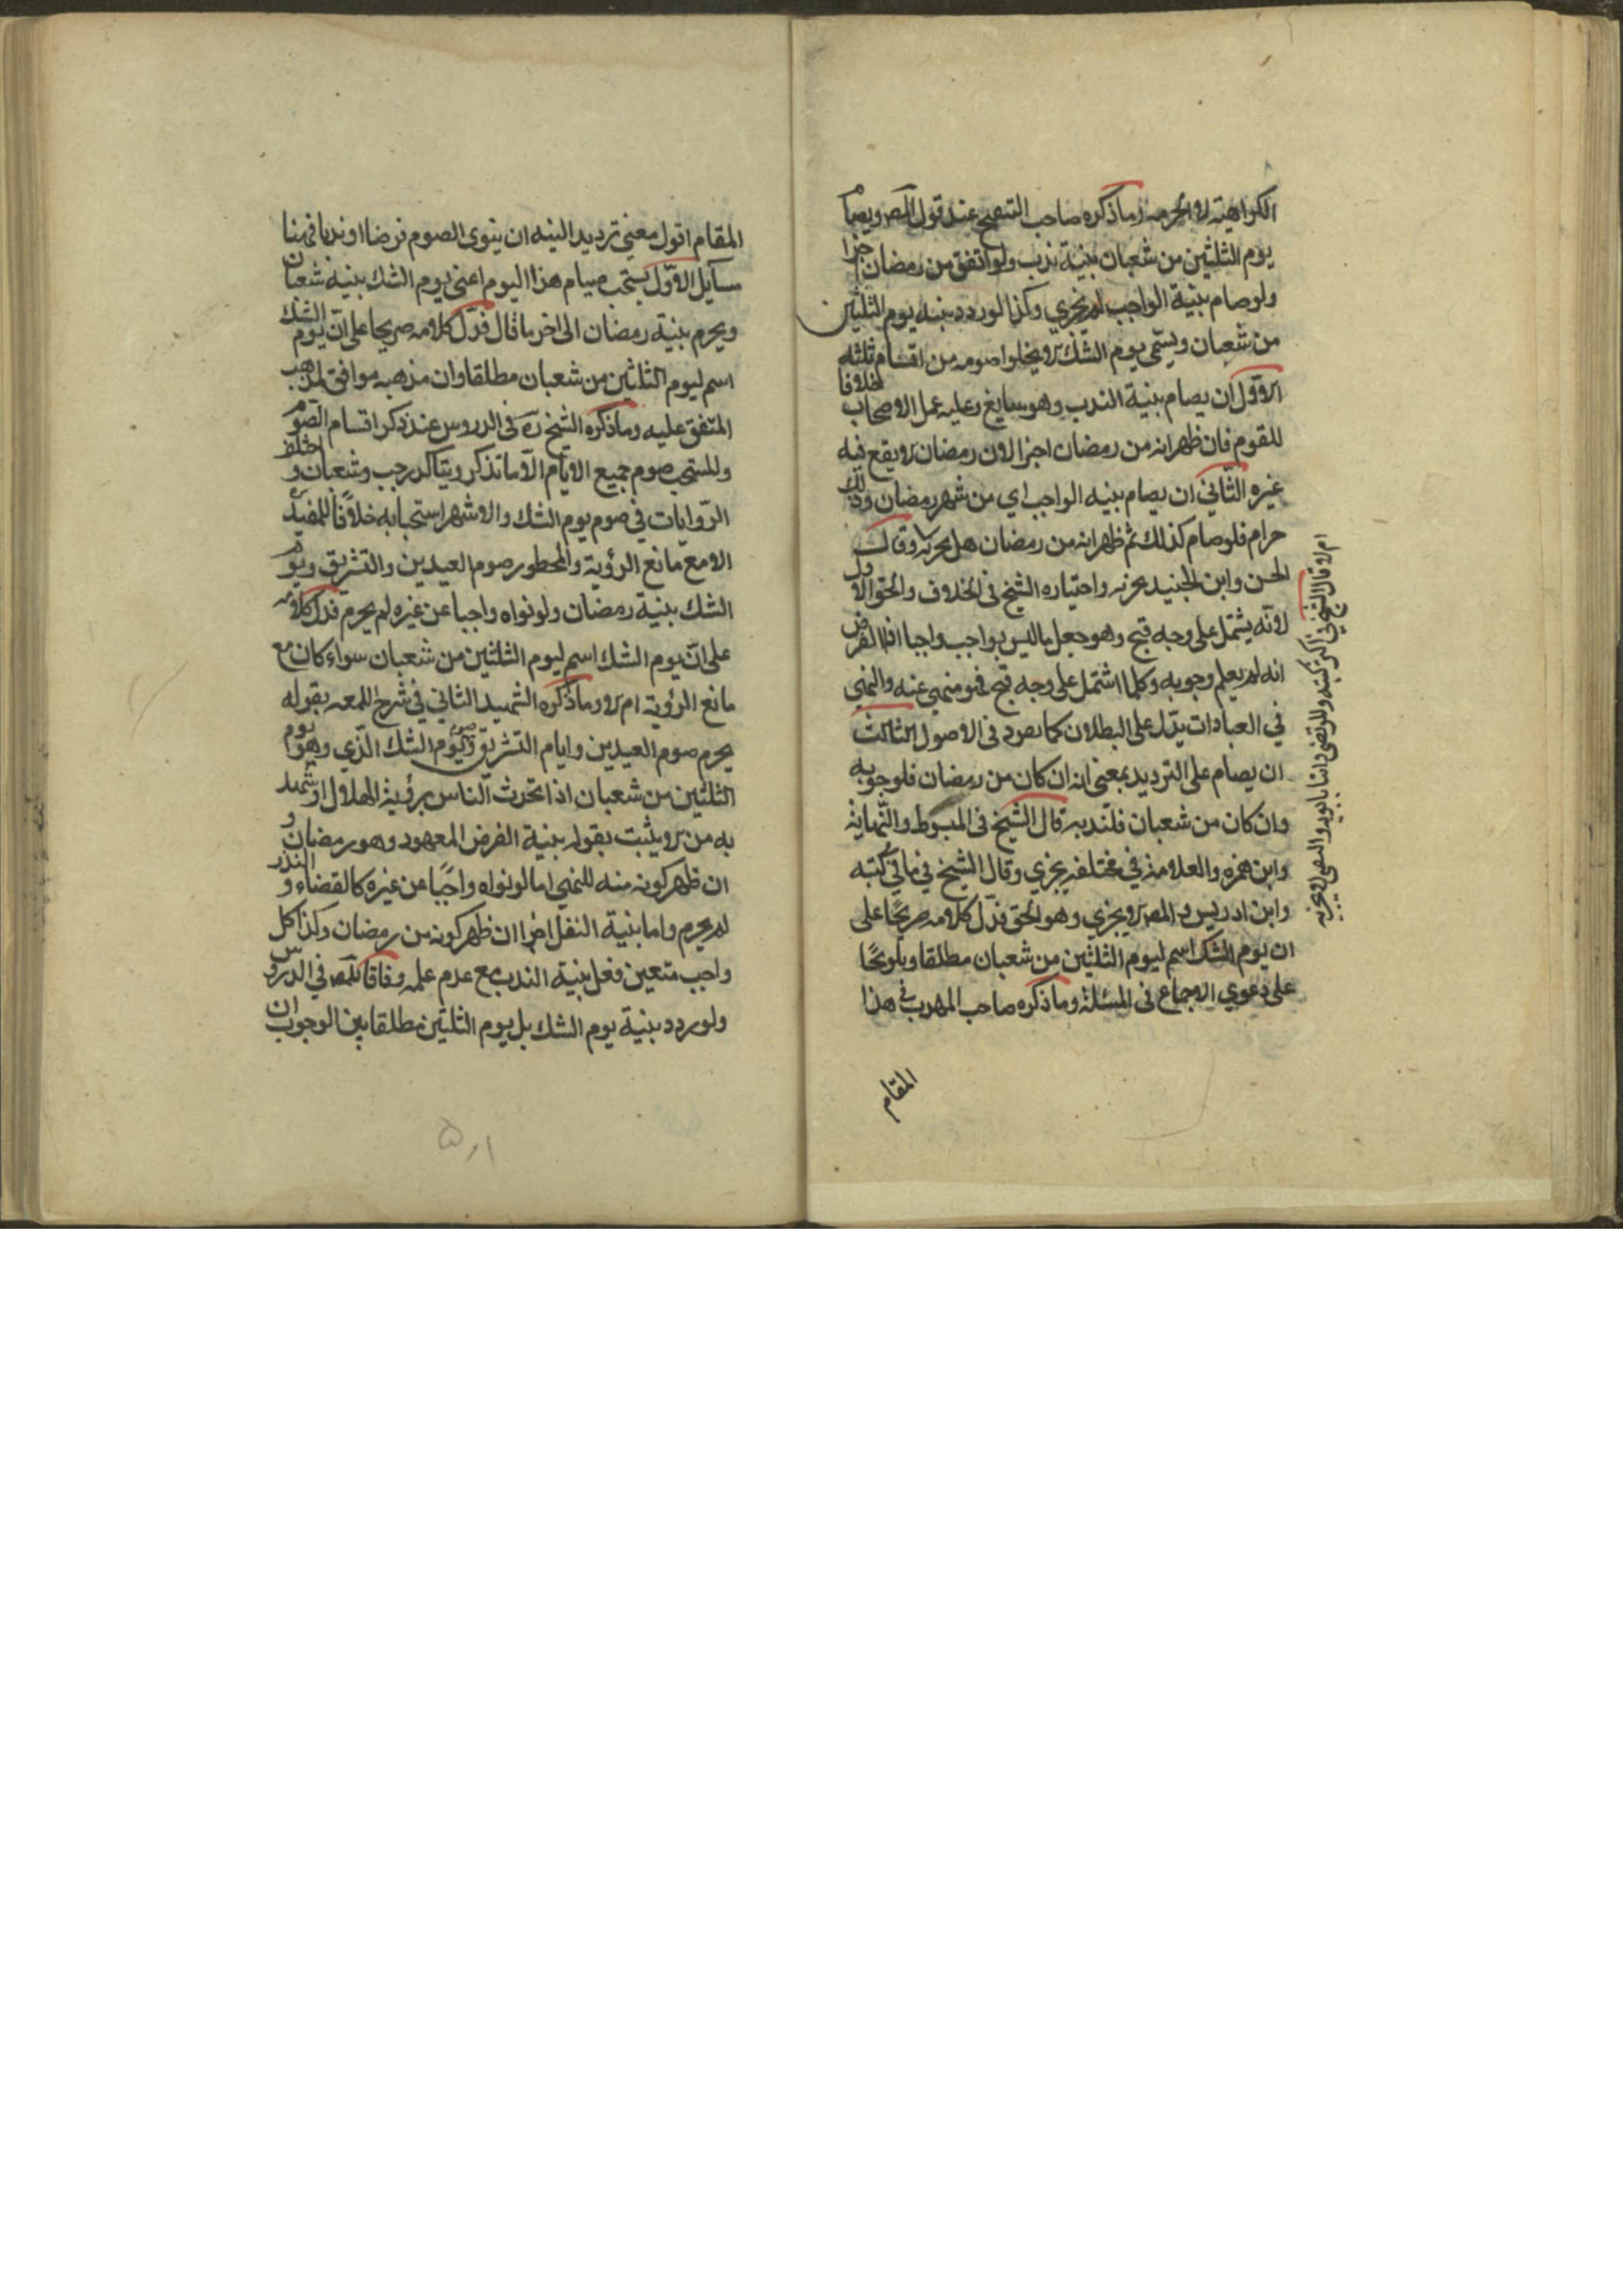 الكراهية لا الحرمه وماذكره صاحب التنقيح عند قول المص ويصام
يوم الثلثين من شعبان بنية ندب ولو اتفق من رمضان اجزا
ولو صام بنية الواجب لم يجزي وكذا لو ردد بنيه يوم الثلثين
من شعبان ويسمي يوم الشك لا يخلوا صومه من اقسام ثلثه
الاول ان يصام بنية الندب وهو سايغ وعليه عمل الاصحاب خلافا
للقوم فان ظهر انه من رمضان اجزا لان رمضان لا يقع فيه
غيره الثاني ان يصام بنيه الواجب اي من شهر رمضان وذلك
حرام فلو صام كذلك ثم ظهر انه من رمضان هل يجزيه
الحسن وابن الجنيد يجزيه واختياره الشيخ في الخلاف والحق الاول
لانه يشتمل علي وجه قبح وهو جعل ما ليس بواجب واجبا الفرض
انه لم يعلم وجوبه وكلما اشتمل علي وجه قبح فهو منهي عنه والنهي
في العبادات يدّل علي البطلان كما في الاصول الثالث
ان يصام علي الترديد بمعني انه ان كان من رمضان فلوجوبه
وان كان من شعبان فلندبه قال الشيخ في المبسوط والنهاية
وابن حمزه والعلامة في مختلفه يجزي وقال الشيخ في باقي كتبه
وابن ادريس والمص لا يجزي وهو الحق فدّل كلامه صريحًا علي
ان يوم الشك اسم ليوم الثلثين من شعبان مطلقا وتلويحًا
علي دعوي الاجماع في المسئلة وماذكره صاحب المهذب في هذا
المقام
المقام اقول معني ترديد النيه ان ينوي الصوم فرضا او ندبا فهنا
مسايل الاوّل يستحب صيام هذا اليوم اعني يوم الشك بنية شعبان
ويحرم بنية رمضان الي اخر ما قال فدّل كلامه صريحا علي انّ يوم الشك
اسم ليوم الثلاثين من شعبان مطلقا وان مذهبه موافق لمذهب
المتفق عليه وماذكره الشيخ ره في الدروس عند ذكر اقسام الصوم
وللمستحب صوم جميع الايّام الّا ما تذكر ويتاكد رجب وشعبان واختلف
الرّوايات في صوم يوم الشك والاشهر استحبابه خلافًا للمفيد ره
الا مع مانع الرؤية والمحظور صوم العيدين والتشريق ويوم
الشك بنية رمضان ولو نواه واجبا عن غيره لم يحرم فدل كلامه
علي انّ يوم الشك اسم ليوم الثلثين من شعبان سواء كان مع
مانع الرؤية ام لا وماذكره الشهيد الثاني في شرح اللمعه بقوله
يحرم صوم العيدين وايام التشريق وصوم يوم الشك الّذي وهو يوم
الثلثين من شعبان اذا تحدث النّاس برؤية الهلال او شهد
به من لا يثبت بقوله بنية الفرض المعهود وهو رمضان و
ان ظهر كونه منه للنهي اما لو نواه واجبًا عن غيره كالقضاء و النذر
لم يحرم واما بنية النفل اجزا ان ظهر كونه من رمضان وكذا كل
واجب متعين فعل بنية الندب مع عدم علمه وفاقا للمص في الدروس
ولو ردد بنية يوم الشك بل يوم الثلثين مطلقا بين الوجوب ان